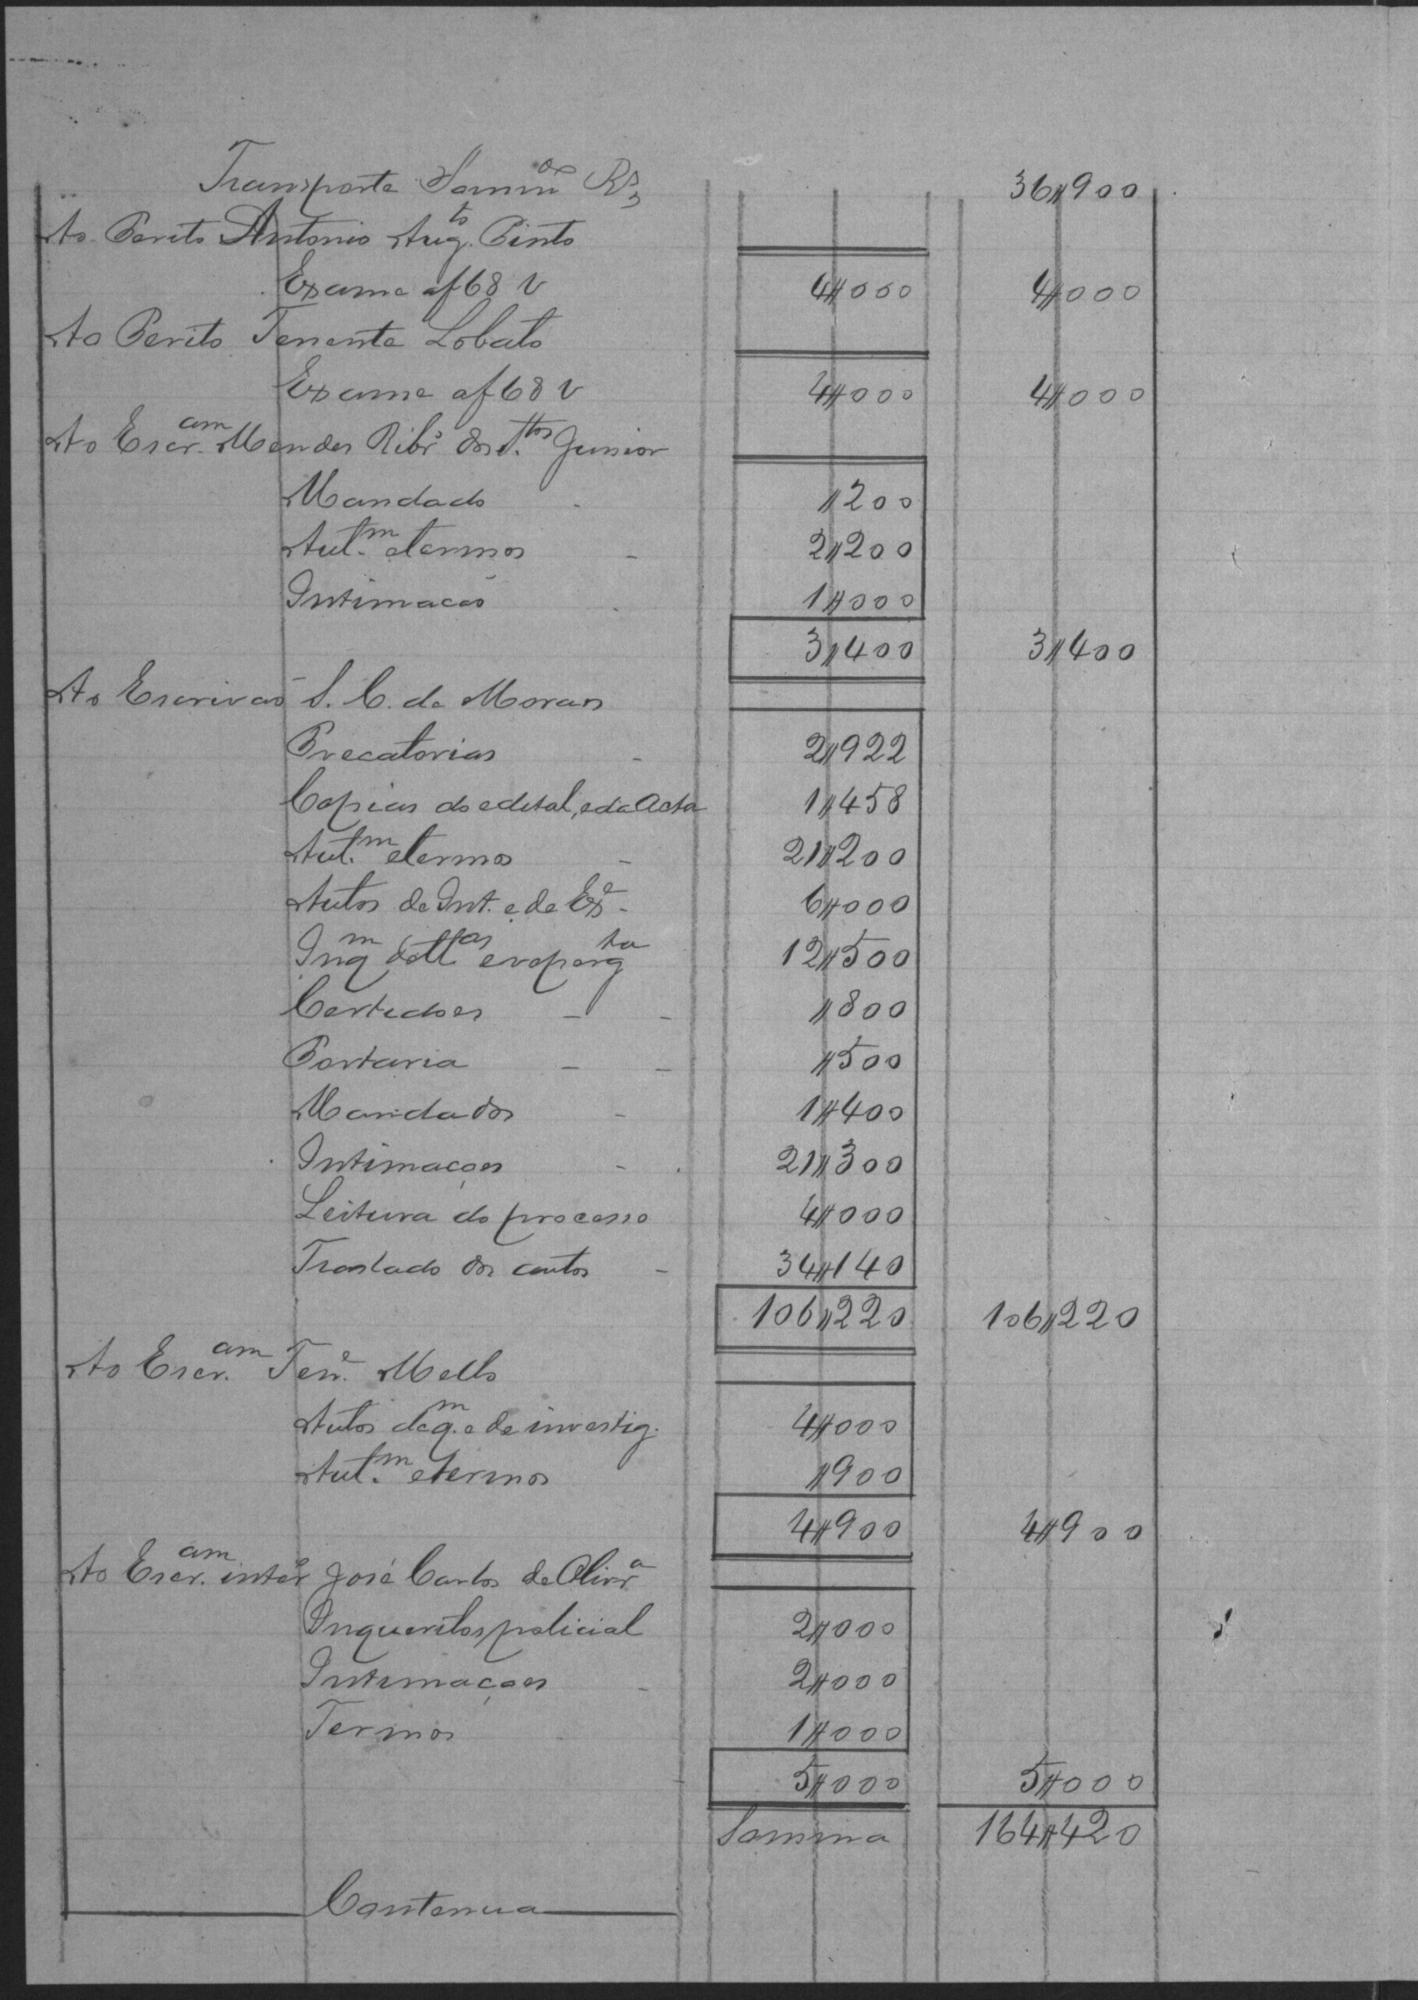 Transporte Somm^do Rs 36$900
Ao Perito Antonio Aug^to Pinto
Exame af 68 v 4$000 4$000
Ao Perito Tenente Lobato
Exame af 68 v 4$000 4$000
Ao Escr.^am Mendes Rib^o dos S.^tos Junior
Mandado $200
Aut.^m e termos 2$200
Intimacaõ 1$000
3$400 3$400
Ao Escrivaõ S. C. de Moraes
Precatorias 2$922
Copias do edital, e da Acta 1$458
Aut.^m e termos 21$200
Autos de Int. e de Ex^e 6$000
Inq^m de tt^as e reperg^ta 12$500
Certidoes $800
Portaria $500
Mandados 1$400
Intimaçoes 21$300
Leitura do processo 4$000
Traslado dos autos 34$140
106$220 106$220
Ao Escr.^am Ten.^e Mello
Autos de q.^m e de investig. 4$000
Aut.^m e termos $900
4$900 4$900
Ao Escr.^am inter^o José Carlos de Oliv^ra
Inqueritos policial 2$000
Intimaçoes 2$000
Termos 1$000
5$000 5$000
Somma 164$420
Contenua